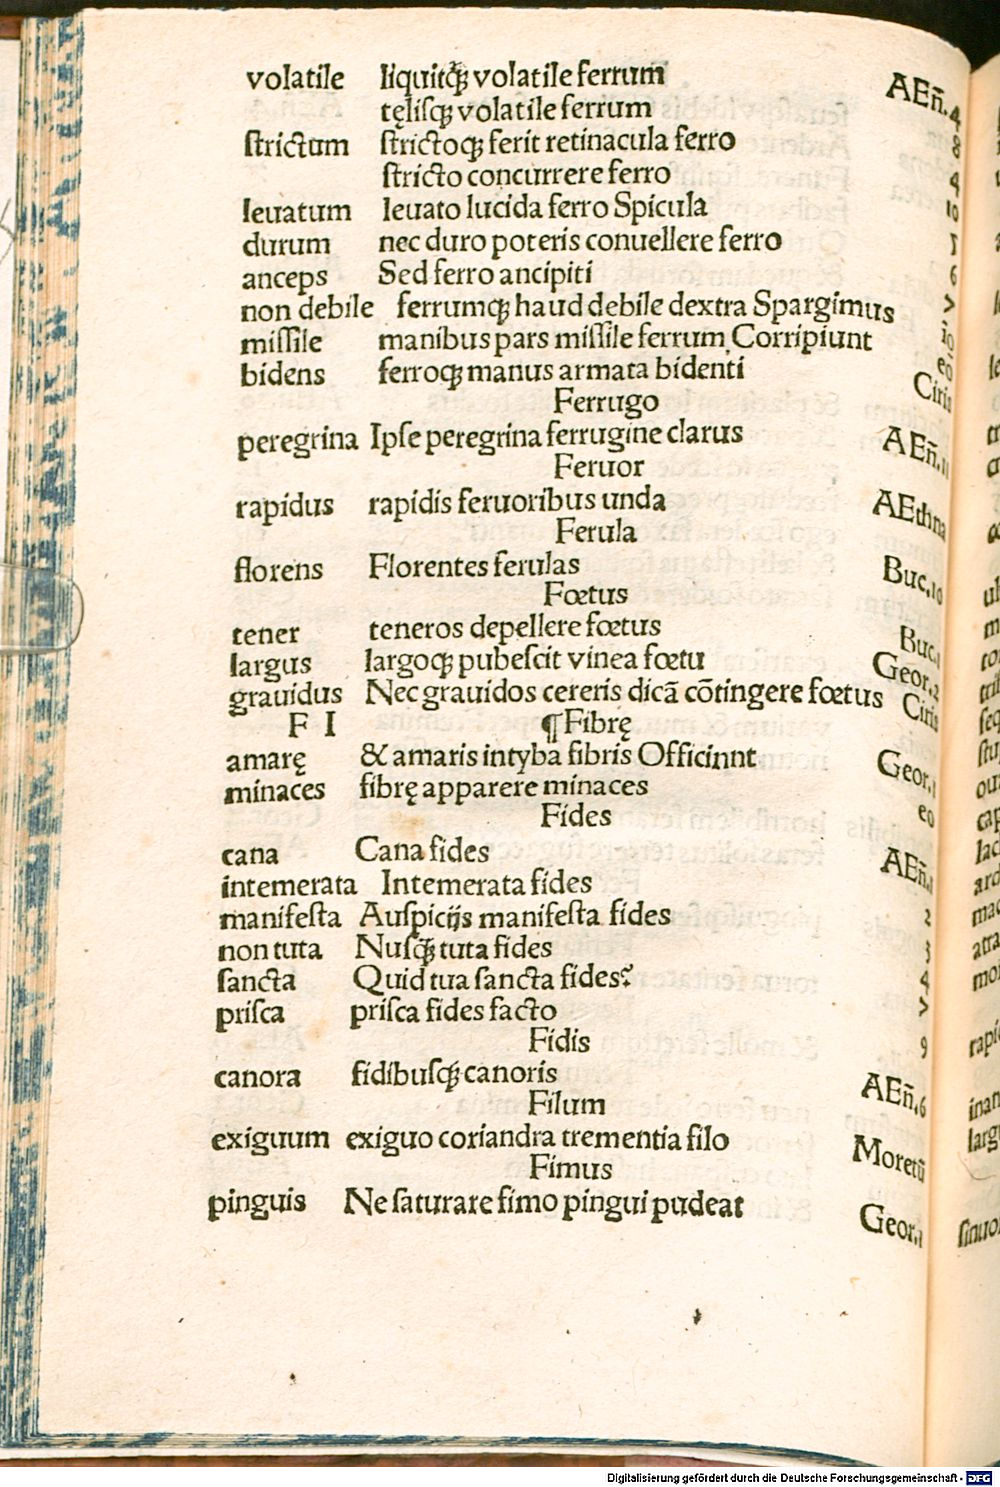 volatile liquitq̃ꝫ volatile ferrum AEñ.4
tęlisqꝫ volatile ferrum 8
ſtrictum ſtrictoqꝫ ferit retinacula ferro 4
ſtricto concurrere ferro 10
leuatum leuato lucida ferro Spicula
durum nec duro poteris conuellere ferro 6
anceps Sed ferro ancipiti
non debile ferrumqꝫ haud debile dextra Spargimus
miſſile manibus pars miſſile ferrum Corripiunt
bidens ferroqꝫ manus armata bidenti Ciris
Ferrugo
peregrina Ipſe peregrina ferrugine clarus AEñ.11
Feruor
rapidus rapidis feruoribus unda AEthna
Ferula
florens Florentes ferulas Buc.10
Fœtus
tener teneros depellere fœtus Buc.1
largus largoqꝫ pubeſcit vinea fœtu Geor.2
grauidus Nec grauidos cereris dicã cõtingere fœtus Ciris
F I ¶Fibrę
amarę & amaris intyba fibris Officinnt Geor.1
minaces fibrę apparere minaces eo
Fides
cana Cana fides AEñ.1
intemerata Intemerata fides 2
manifeſta Auſpicijs manifeſta fides 3
non tuta Nuſq̃ꝫ tuta fides 4
ſancta Quid tua ſancta fides? 7
priſca priſca fides facto 9
Fidis
canora fidibuſqꝫ canoris AEñ.6
Filum
exiguum exiguo coriandra trementia filo Moretũ
Fimus
pinguis Ne ſaturare fimo pingui pudeat Geor.1
Digitalisierung gefördert durch die Deutsche Forschungsgemeinschaft - DFG